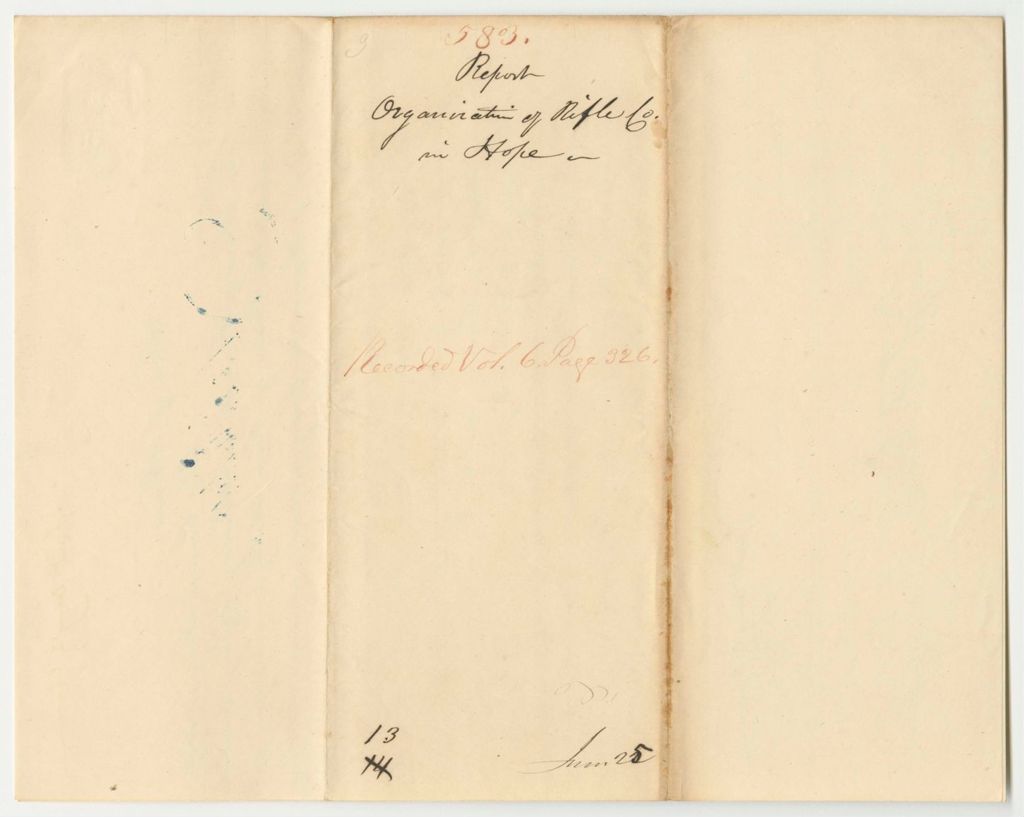 583.
Report
Organization of Rifle Co.
in Hope
Recorded Vol. 6. Page 326.
13
14
June 25